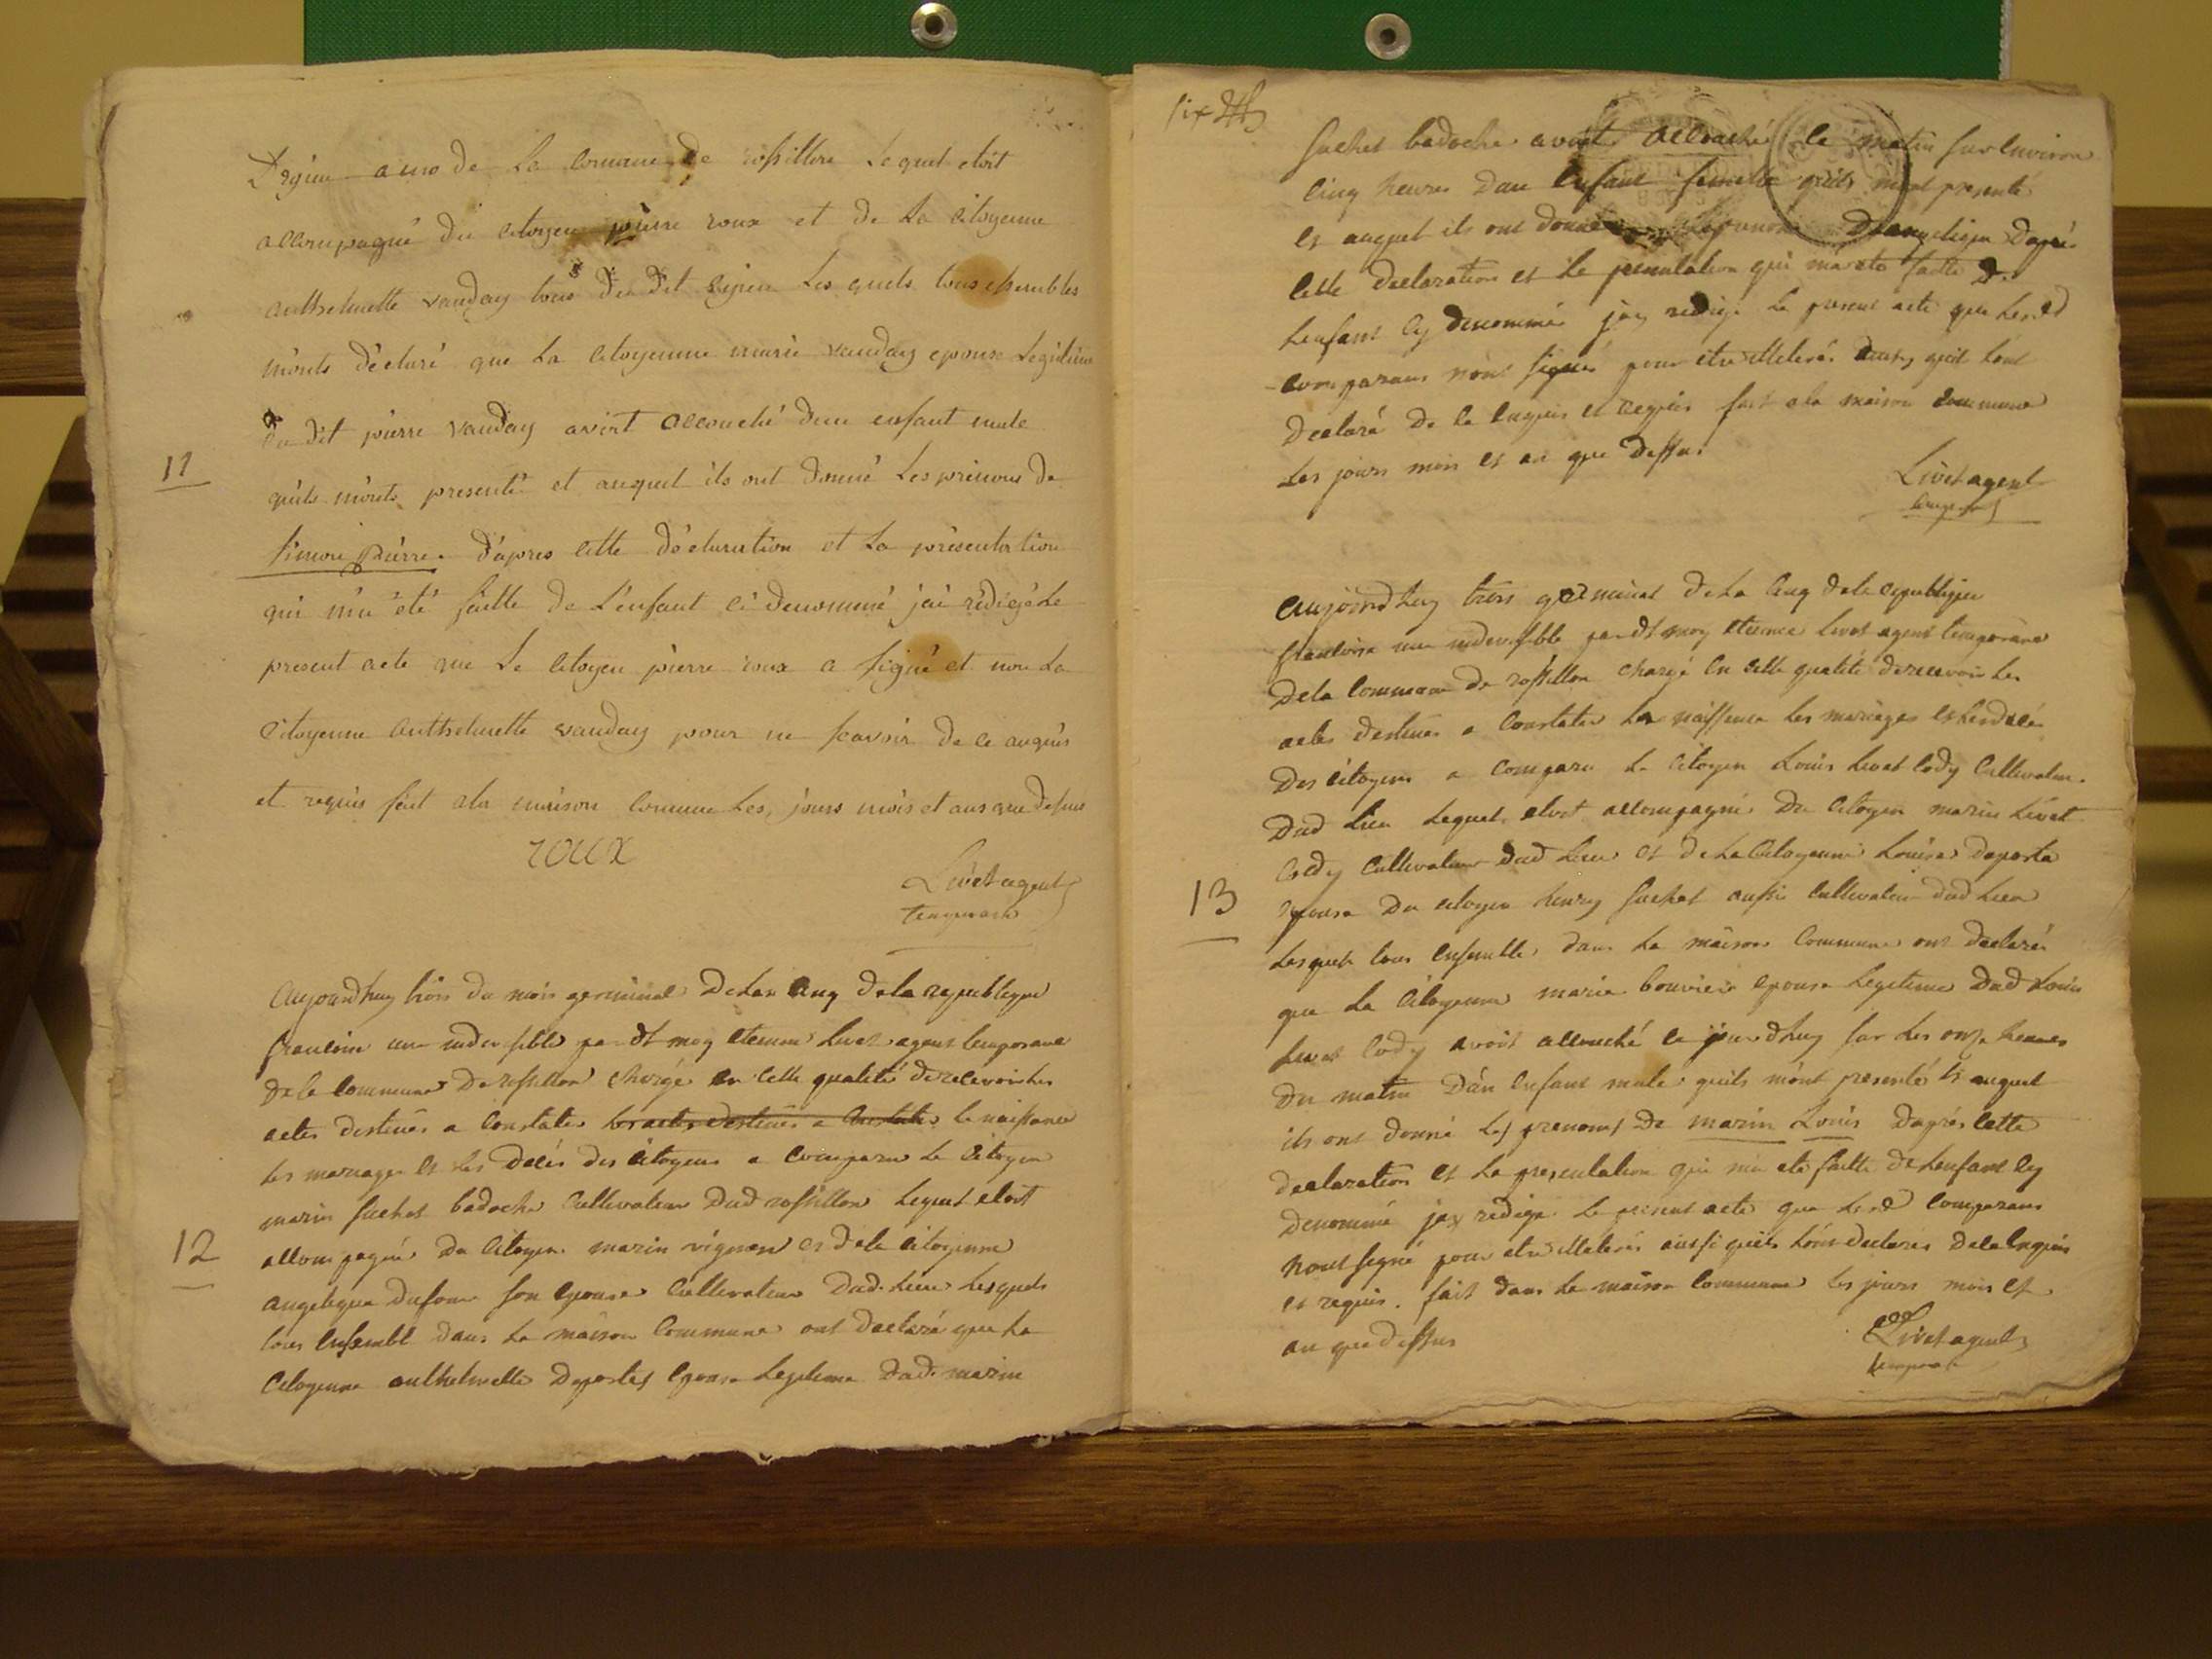 accompagné du citoyen pierre roux et de la citoyenne
anthelmette vauday tous du dit lieu les quels tous ensembles
m'onts déclaré que la citoyenne marie vauday epouse legitime
du dit pierre vauday avoit accouché d'un enfant male
11
qu'ils m'onts presenté et auquel ils ont donné les prenoms de
simon pierre. d'apres cette déclaration et la présentation
qui m'a été faitte de l'enfant ci denommé j'ai rédigé le
present acte que le citoyen pierre roux a signé et non la
citoyenne anthelmette vauday pour ne scavoir de ce enquis
et requis fait a la maison comune les jours mois et ans que dessus
roux
Livet agent
temporaire
aujourdhuy trois du mois germinal de lan cinq de la republique
francoise une indivisible pardt moy etienne livet agent temporaire
de la commune de rossillon chargé en cette qualité de recevoir les
actes destinés a constater les actes destinés a constater la naissance
les mariages et les décés des citoyens a comparu le citoyen
marin suchet badoche cultivateur dud rossillon lequel etoit
12
accompagné du citoyen marin vignon et de la citoyenne
angelique dufour son epouse cultivateur dud. lieu lesquels
tous ensembl dans la maison commune ont declaré que la
citoyenne anthelmette deportes epouse legitime dud. marin
six
suchet badoche avoit accouché ce matin sur environ
cinq heures d'un enfant femelle qu'ils m'ont presenté
et auquel ils ont donné prenom d'angelique d'aprés
cette declaration et la presentation qui m'a eté faitte de
lenfant cy denommé jay redigé le present acte que lesd
comparans n'ont signé pour etre illeterés ainsy qu'il l'ont
declaré de ce enquis et requis fait a la maison commune
les jours mois et an que dessus
Livet agent
temporaire
aujourdhuy trois germinal de la cinq de la republique
francoise une indivisible pardt moy etienne livet agent temporaire
de la commune de rossillon chargé en cette qualité de recevoir les
actes destinés a constater la naissance les mariages et les décés
des citoyens a comparu le citoyen louis livet cody cultivateur
dud lieu lequel etoit accompagné du citoyen marin livet
cody cultivateur dud lieu et de la citoyenne louise deporte
13
epouse du citoyen henry suchet aussi cultivateur dud lieu
lesquels tous ensemble dans la maison commune ont declaré
que la citoyenne marie bouvier epouse legitime dud louis
livet cody avoit accouché ce jourdhuy sur les onze heures
du matin d'un enfant male qu'ils m'ont presenté et auquel
ils ont donné les prenoms de marin louis d'aprés cette
declaration et la presentation qui m'a eté faitte de lenfant cy
denommé jay redigé le present acte que lesd comparans
n'ont signé pour etre illeterés ainsi qu'ils l'ont declarés de ce enquis
et requis. fait dans la maison commune les jours mois et
an que dessus
Livet agent
temporaire